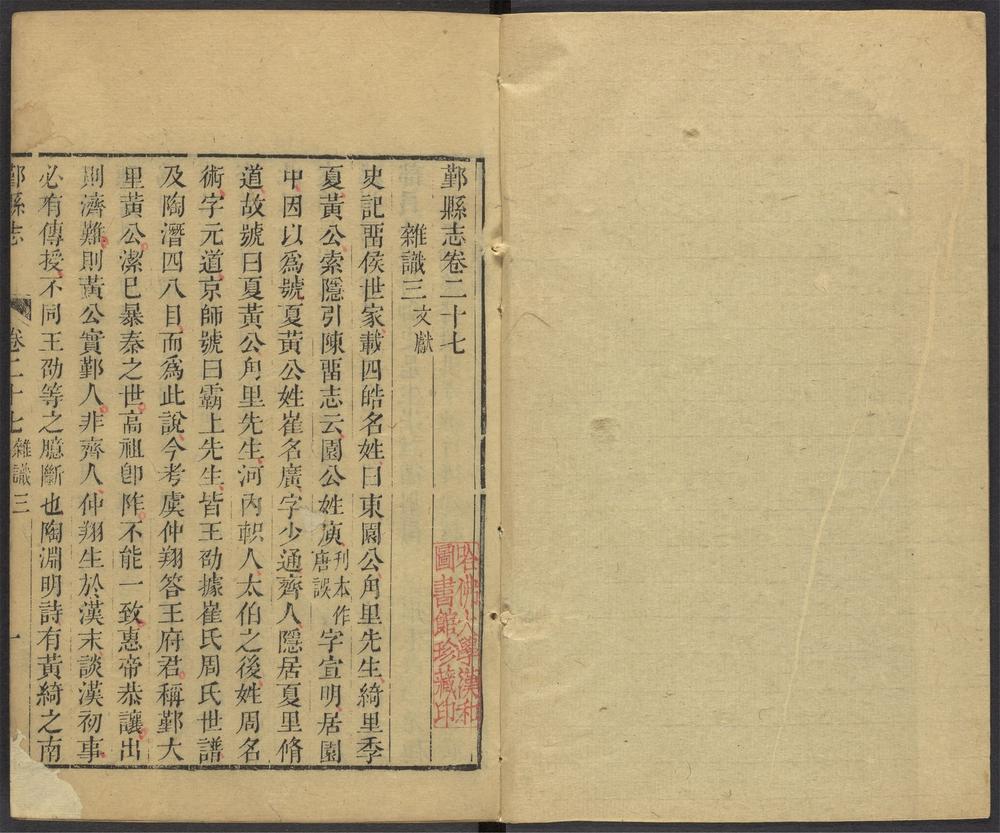 鄞縣志卷二十七
雜識三文獻
史記畱侯世家載四皓名姓曰東園公角里先生綺里季
夏黃公索隱引陳畱志云園公姓庾刊本作唐誤字宣明居園
中因以爲號夏黃公姓崔名廣字少通齊人隱居夏里脩
道故號曰夏黃公角里先生河內軹人太伯之後姓周名
術字元道京師號曰霸上先生皆王劭據崔氏周氏世譜
及陶潛四八目而爲此說今考虞仲翔答王府君稱鄞大
里黃公潔巳暴秦之世高祖卽阼不能一致惠帝恭讓出
則濟難則黃公實鄞人非齊人仲翔生於漢末談漢初事
必有傳授不同王劭等之臆斷也陶淵明詩有黃綺之南
鄞縣志
卷二十七雜識三
一
哈佛大學漢和
圖書館珍藏印